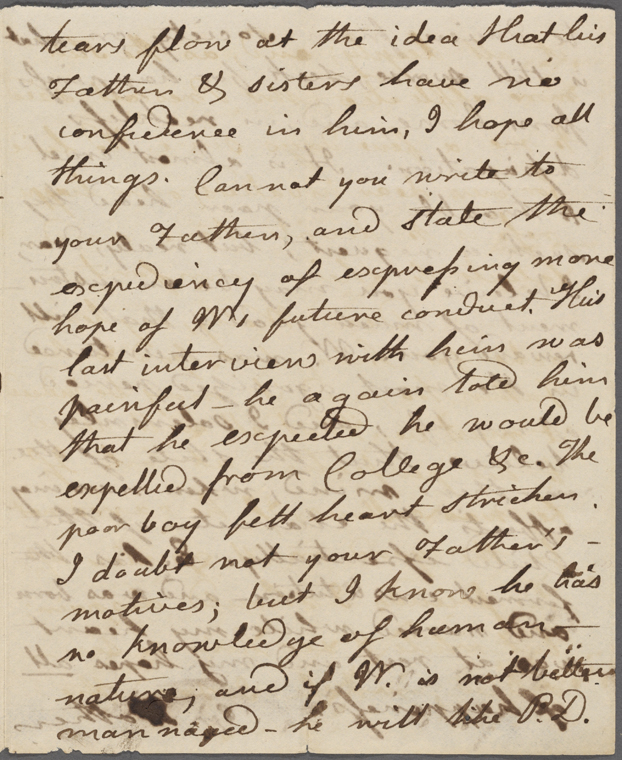 tears flow at the idea that his
Father & sisters have no
confidence in him, I hope all
things. Can not you write to
your Father, and state the
expediency of expressing more
hope of W's future conduct. His
last interview with him was
painful - he again told him
that he expected he would be
expelled from College &c. The
poor boy felt heart stricken.
I doubt not your Father's -
motives; but I know he has
no knowledge of human -
nature, and if W. is not better
mannaged - he will like P.D.